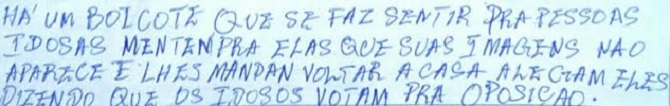 HÁ UM BOICOTE QUE SE FAZ SENTIR PRA PESSOAS
IDOSAS MENTEM PRA ELAS QUE SUAS IMAGENS NAO
APARECE E LHES MANDAN VOLTAR A CASA ALEGAM ELES
DIZENDO QUE OS IDOSOS VOTAM PRA OPOSICAO.